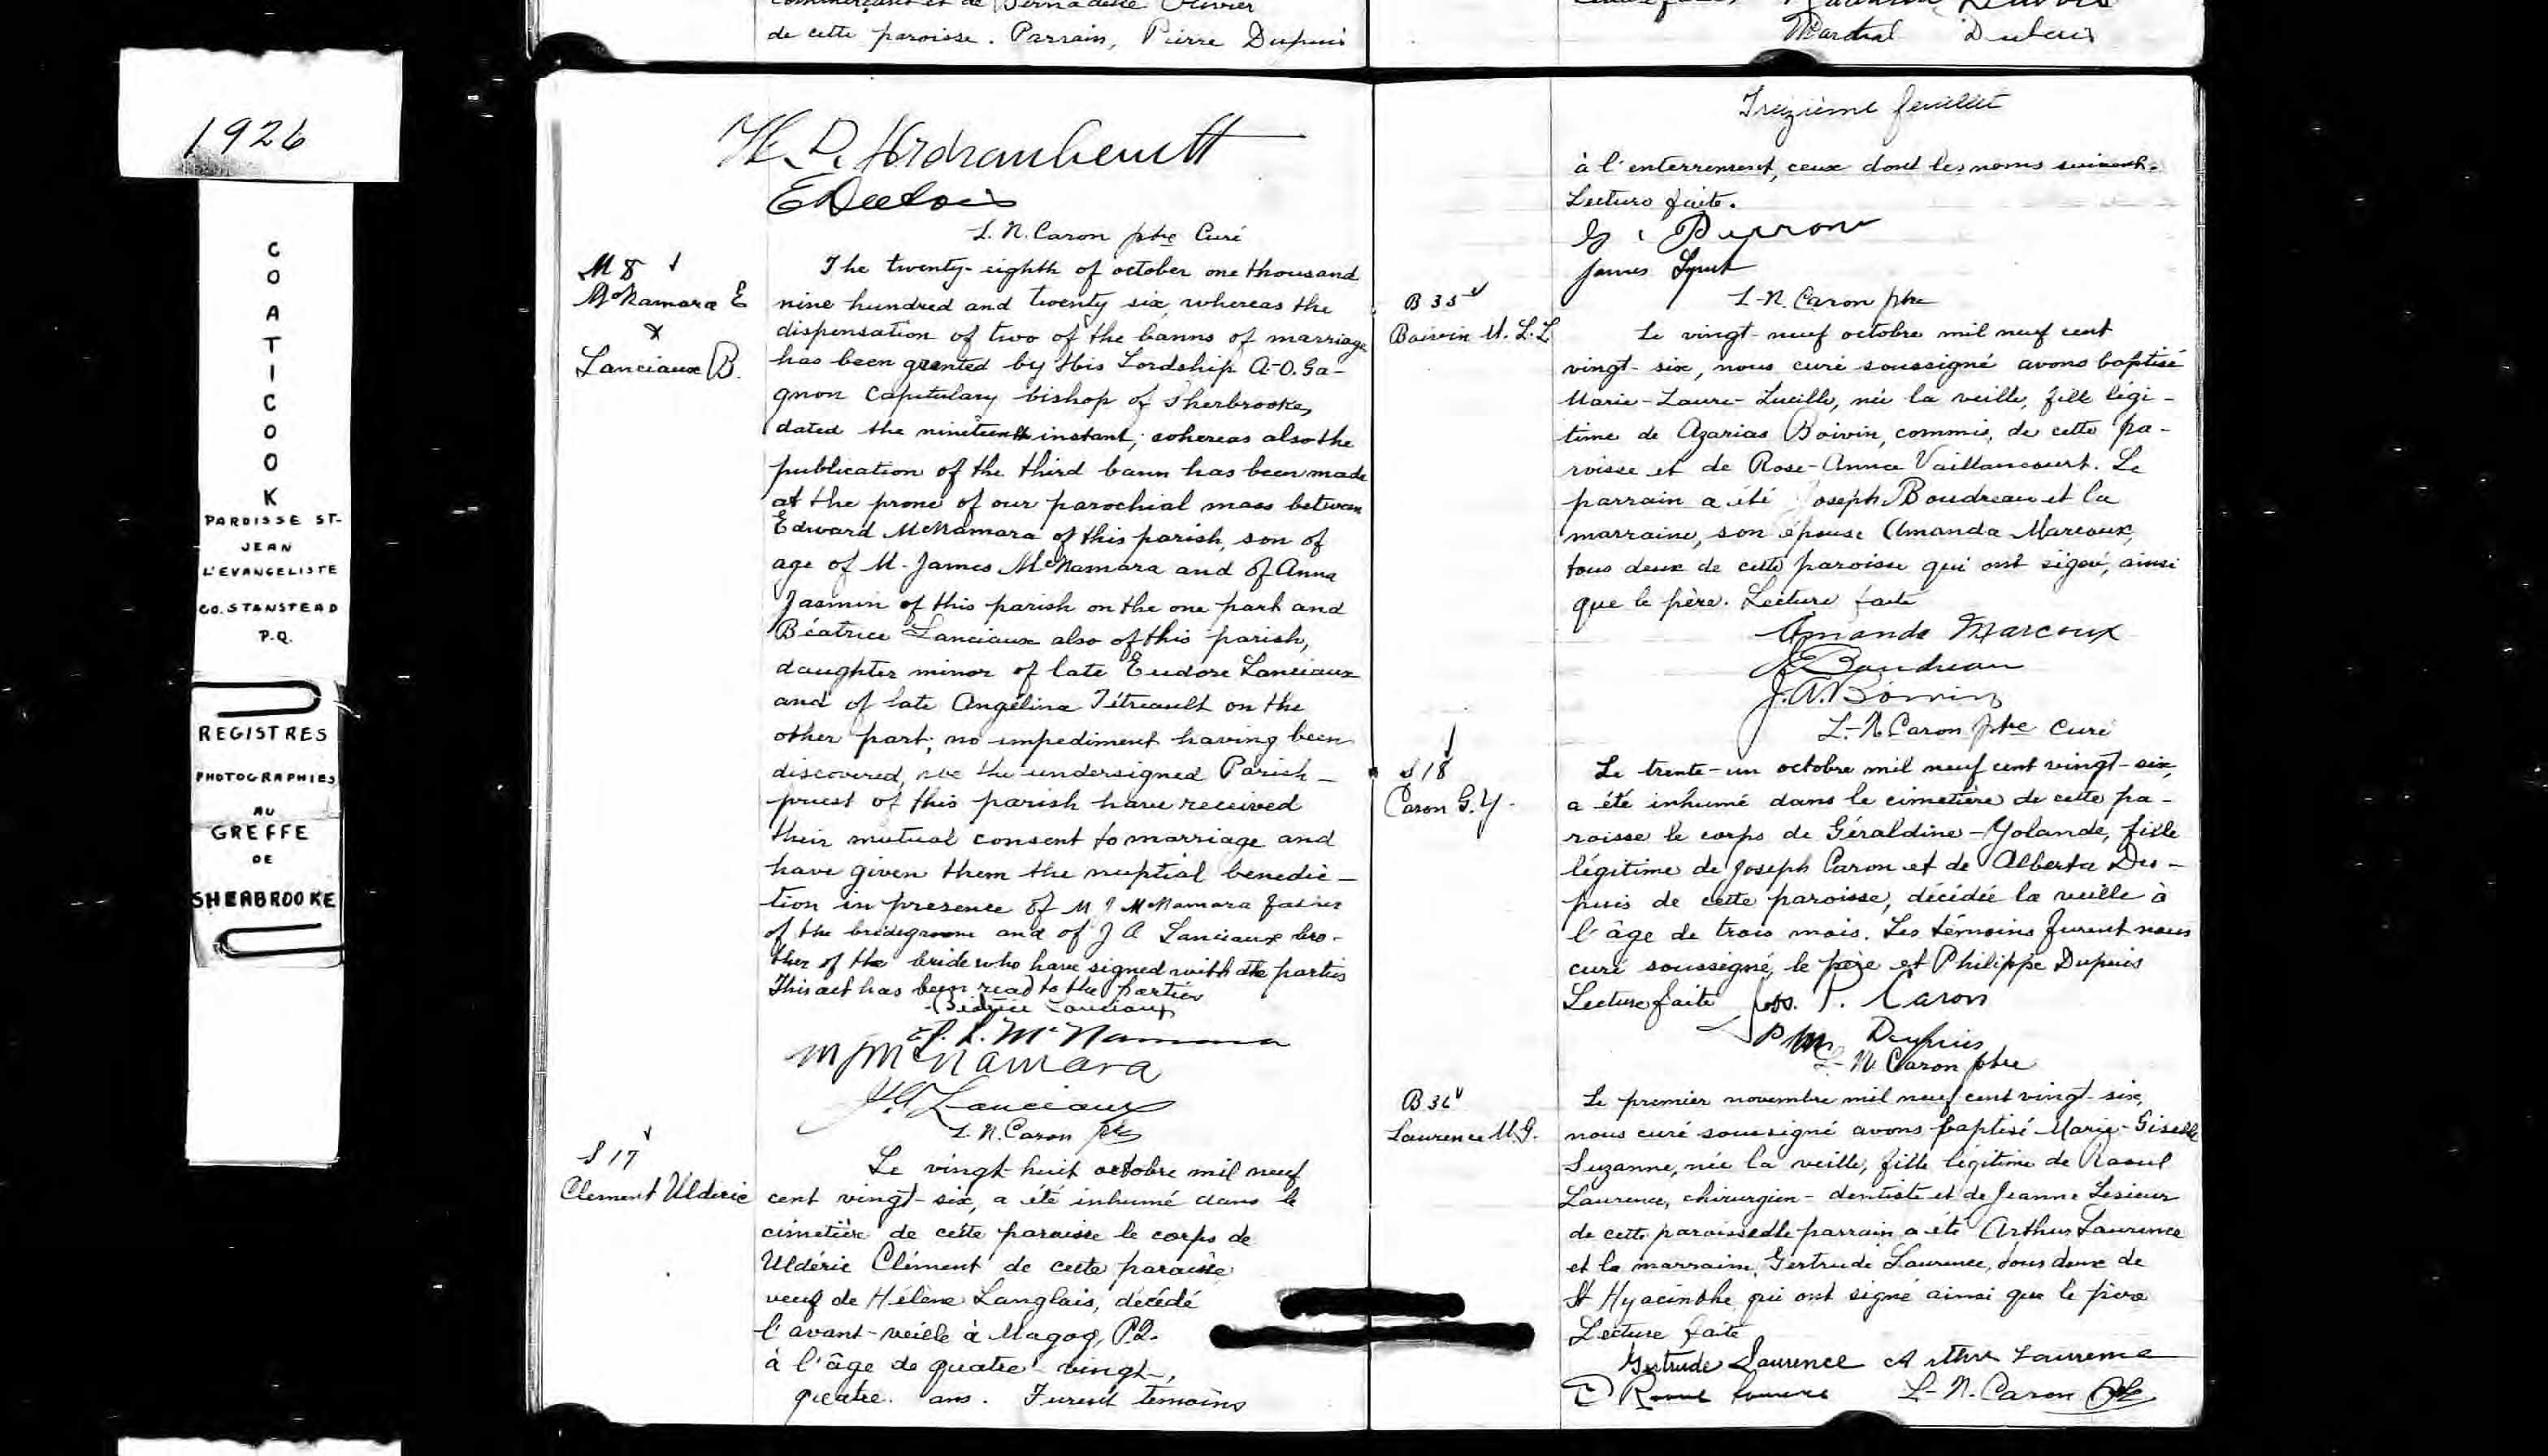 1926
COATICOOK
PAROISSE ST-
JEAN
L'EVANGELISTE
CO. STANSTEAD
P.Q.
REGISTRES
PHOTOGRAPHIES
AU
GREFFE
DE
SHERBROOKE
de cette paroisse. Parrain, Pierre Dupuis
L. N. Caron ptre Curé
M 8
McNamara E
x
Lanciaux B.
The twenty-eighth of october one thousand
nine hundred and twenty six, whereas the
dispensation of two of the banns of marriage
has been granted by His Lordship A-O. Ga-
gnon Capitulary bishop of Sherbrooke,
dated the nineteenth instant; whereas also the
publication of the third bann has been made
at the prone of our parochial mass between
Edward McNamara of this parish, son of
age of M. James McNamara and of Anna
Jasmin of this parish on the one part and
Béatrice Lanciaux also of this parish,
daughter minor of late Eudore Lanciaux
and of late Angélina Tétreault on the
other part; no impediment having been
discovered, we the undersigned Parish-
priest of this parish have received
their mutual consent to marriage and
have given them the nuptial benedic-
tion in presence of M J McNamara father
of the bridegroom and of J A Lanciaux bro-
ther of the bride who have signed with the parties
This act has been read to the parties
Béatrice Lanciaux
McNamara
M J McNamara
J A Lanciaux
L. N. Caron ptre
S 17
Clement Uldéric
Le vingt-huit octobre mil neuf
cent vingt-six, a été inhumé dans le
cimetière de cette paroisse le corps de
Uldéric Clément de cette paroisse
veuf de Hélène Langlais, décédé
l'avant-veille à Magog, P.Q.
à l'âge de quatre-vingt-,
quatre. ans. Furent temoins
Martial Dubois
Treizième feuillet
à l'enterrement, ceux dont les noms suivent.
Lecture faite.
James Lynch
L-N. Caron ptre
B 35
Boivin M. L. L
Le vingt-neuf octobre mil neuf cent
vingt-six, nous curé soussigné avons baptisé
Marie-Laure-Lucille, née la veille, fille légi-
time de Azarias Boivin, commis, de cette pa-
roisse et de Rose-Anna Vaillancourt. Le
parrain a été Joseph Boudreau et la
marraine, son épouse Amanda Marcoux,
tous deux de cette paroisse qui ont signé, ainsi
que le père. Lecture faite
Amanda Marcoux
J E Boudreau
J. A. Boivin
L.-N Caron ptre Curé
S 18
Caron G. Y.
Le trente-un octobre mil neuf cent vingt-six,
a été inhumé dans le cimetière de cette pa-
roisse le corps de Géraldine-Yolande, fille
légitime de Joseph Caron et de Alberta Du-
puis de cette paroisse, décédée la veille à
l'âge de trois mois. Les témoins furent nous
curé soussigné, le père et Philippe Dupuis
Lecture faite Jos. P. Caron
P M Dupuis
L-N. Caron ptre
B 36
Laurence M. G.
Le premier novembre mil neuf cent vingt-six,
nous curé soussigné avons baptisé Marie-Giselle
Suzanne, née la veille, fille légitime de Raoul
Laurence, chirurgien-dentiste et de Jeanne Lesieur
de cette paroisse. Le parrain a été Arthur Laurence
et la marraine, Gertrude Laurence, tous deux de
St Hyacinthe qui ont signé ainsi que le père
Lecture faite
Gertrude Laurence Arthur Laurence
Raoul Laurence L-N. Caron ptre